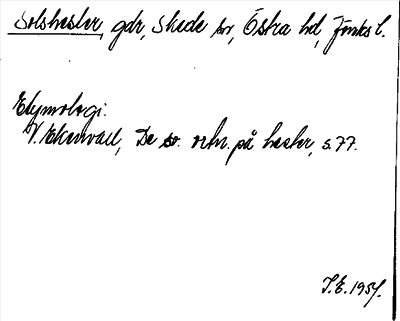 Solshester, gdr, Skede sn, Östra hd, Jönks l.
Etymologi:
V. Ekenvall, De sv. ortn. på hester, s. 77.
I.E. 1957.